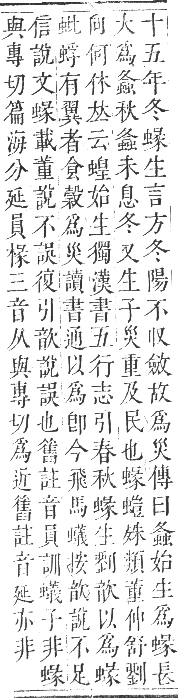 十五年冬蝝生言方冬陽不収斂故爲災傳曰螽始生爲蝝長
大爲螽秋螽未息冬又生子災重及民也蝝螕姝類董仲舒劉
向何休竝云蝗始生獨漢書五行志引春秋蝝生劉歆以爲蝝
蚍蜉有翼者食穀爲災讀書通以爲卽今飛馬蟻按歆說不足
信說文蝝載董說不誤復引歆說誤也舊註音員訓蟻子非蝝
與專切篇海分延員椽三音从與專切爲近舊註音延亦非